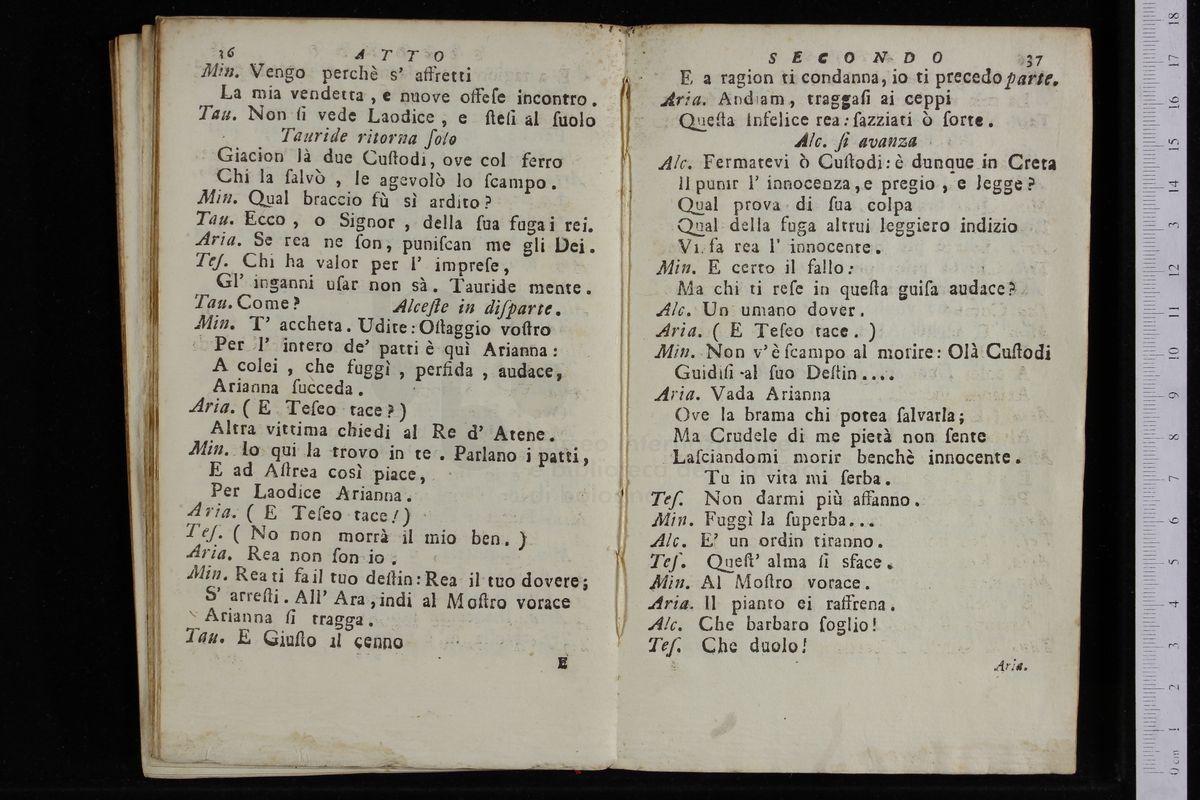 36 ATTO
Min. Vengo perchè s' affretti
La mia vendetta , e nuove offeſe incontro.
Tau. Non ſi vede Laodice , e ſteſi al ſuolo
Tauride ritorna ſolo
Giacion là due Cuſtodi, ove col ferro
Chi la ſalvò , le agevolò lo ſcampo.
Min. Qual braccio fù sì ardito?
Tau. Ecco , o Signor , della ſua fuga i rei.
Aria. Se rea ne ſon, puniſcan me gli Dei.
Teſ. Chi ha valor per l' impreſe,
Gl' inganni uſar non sà. Tauride mente.
Tau. Come? Alceſte in diſparte.
Min. T' accheta. Udite: Oſtaggio voſtro
Per l' intero de' patti è quì Arianna:
A colei , che fuggì , perfida , audace,
Arianna ſucceda.
Aria. ( E Teſeo tace? )
Altra vittima chiedi al Re d' Atene.
Min. Io qui la trovo in te . Parlano i patti,
E ad Aſtrea così piace,
Per Laodice Arianna.
Aria. ( E Teſeo tace! )
Teſ. ( No non morrà il mio ben. )
Aria. Rea non ſon io .
Min. Rea ti fa il tuo deſtin: Rea il tuo dovere;
S' arreſti. All' Ara, indi al Moſtro vorace
Arianna ſi tragga.
Tau. E Giuſto il cenno
E
SECONDO 37
E a ragion ti condanna, io ti precedo parte.
Aria. Andiam, traggaſi ai ceppi
Queſta infelice rea: ſazziati ò ſorte.
Alc. ſi avanza
Alc. Fermatevi ò Cuſtodi: è dunque in Creta
Il punir l' innocenza, e pregio , e legge?
Qual prova di ſua colpa
Qual della fuga altrui leggiero indizio
Vi fa rea l' innocente.
Min. E certo il fallo:
Ma chi ti reſe in queſta guiſa audace?
Alc. Un umano dover.
Aria. ( E Teſeo tace. )
Min. Non v' è ſcampo al morire: Olà Cuſtodi
Guidiſi al ſuo Deſtin....
Aria. Vada Arianna
Ove la brama chi potea ſalvarla;
Ma Crudele di me pietà non ſente
Laſciandomi morir benchè innocente.
Tu in vita mi ſerba.
Teſ. Non darmi più affanno.
Min. Fuggì la ſuperba...
Alc. E' un ordin tiranno.
Teſ. Queſt' alma ſi sface.
Min. Al Moſtro vorace.
Aria. Il pianto ei raffrena.
Alc. Che barbaro ſoglio!
Teſ. Che duolo!
Aria.